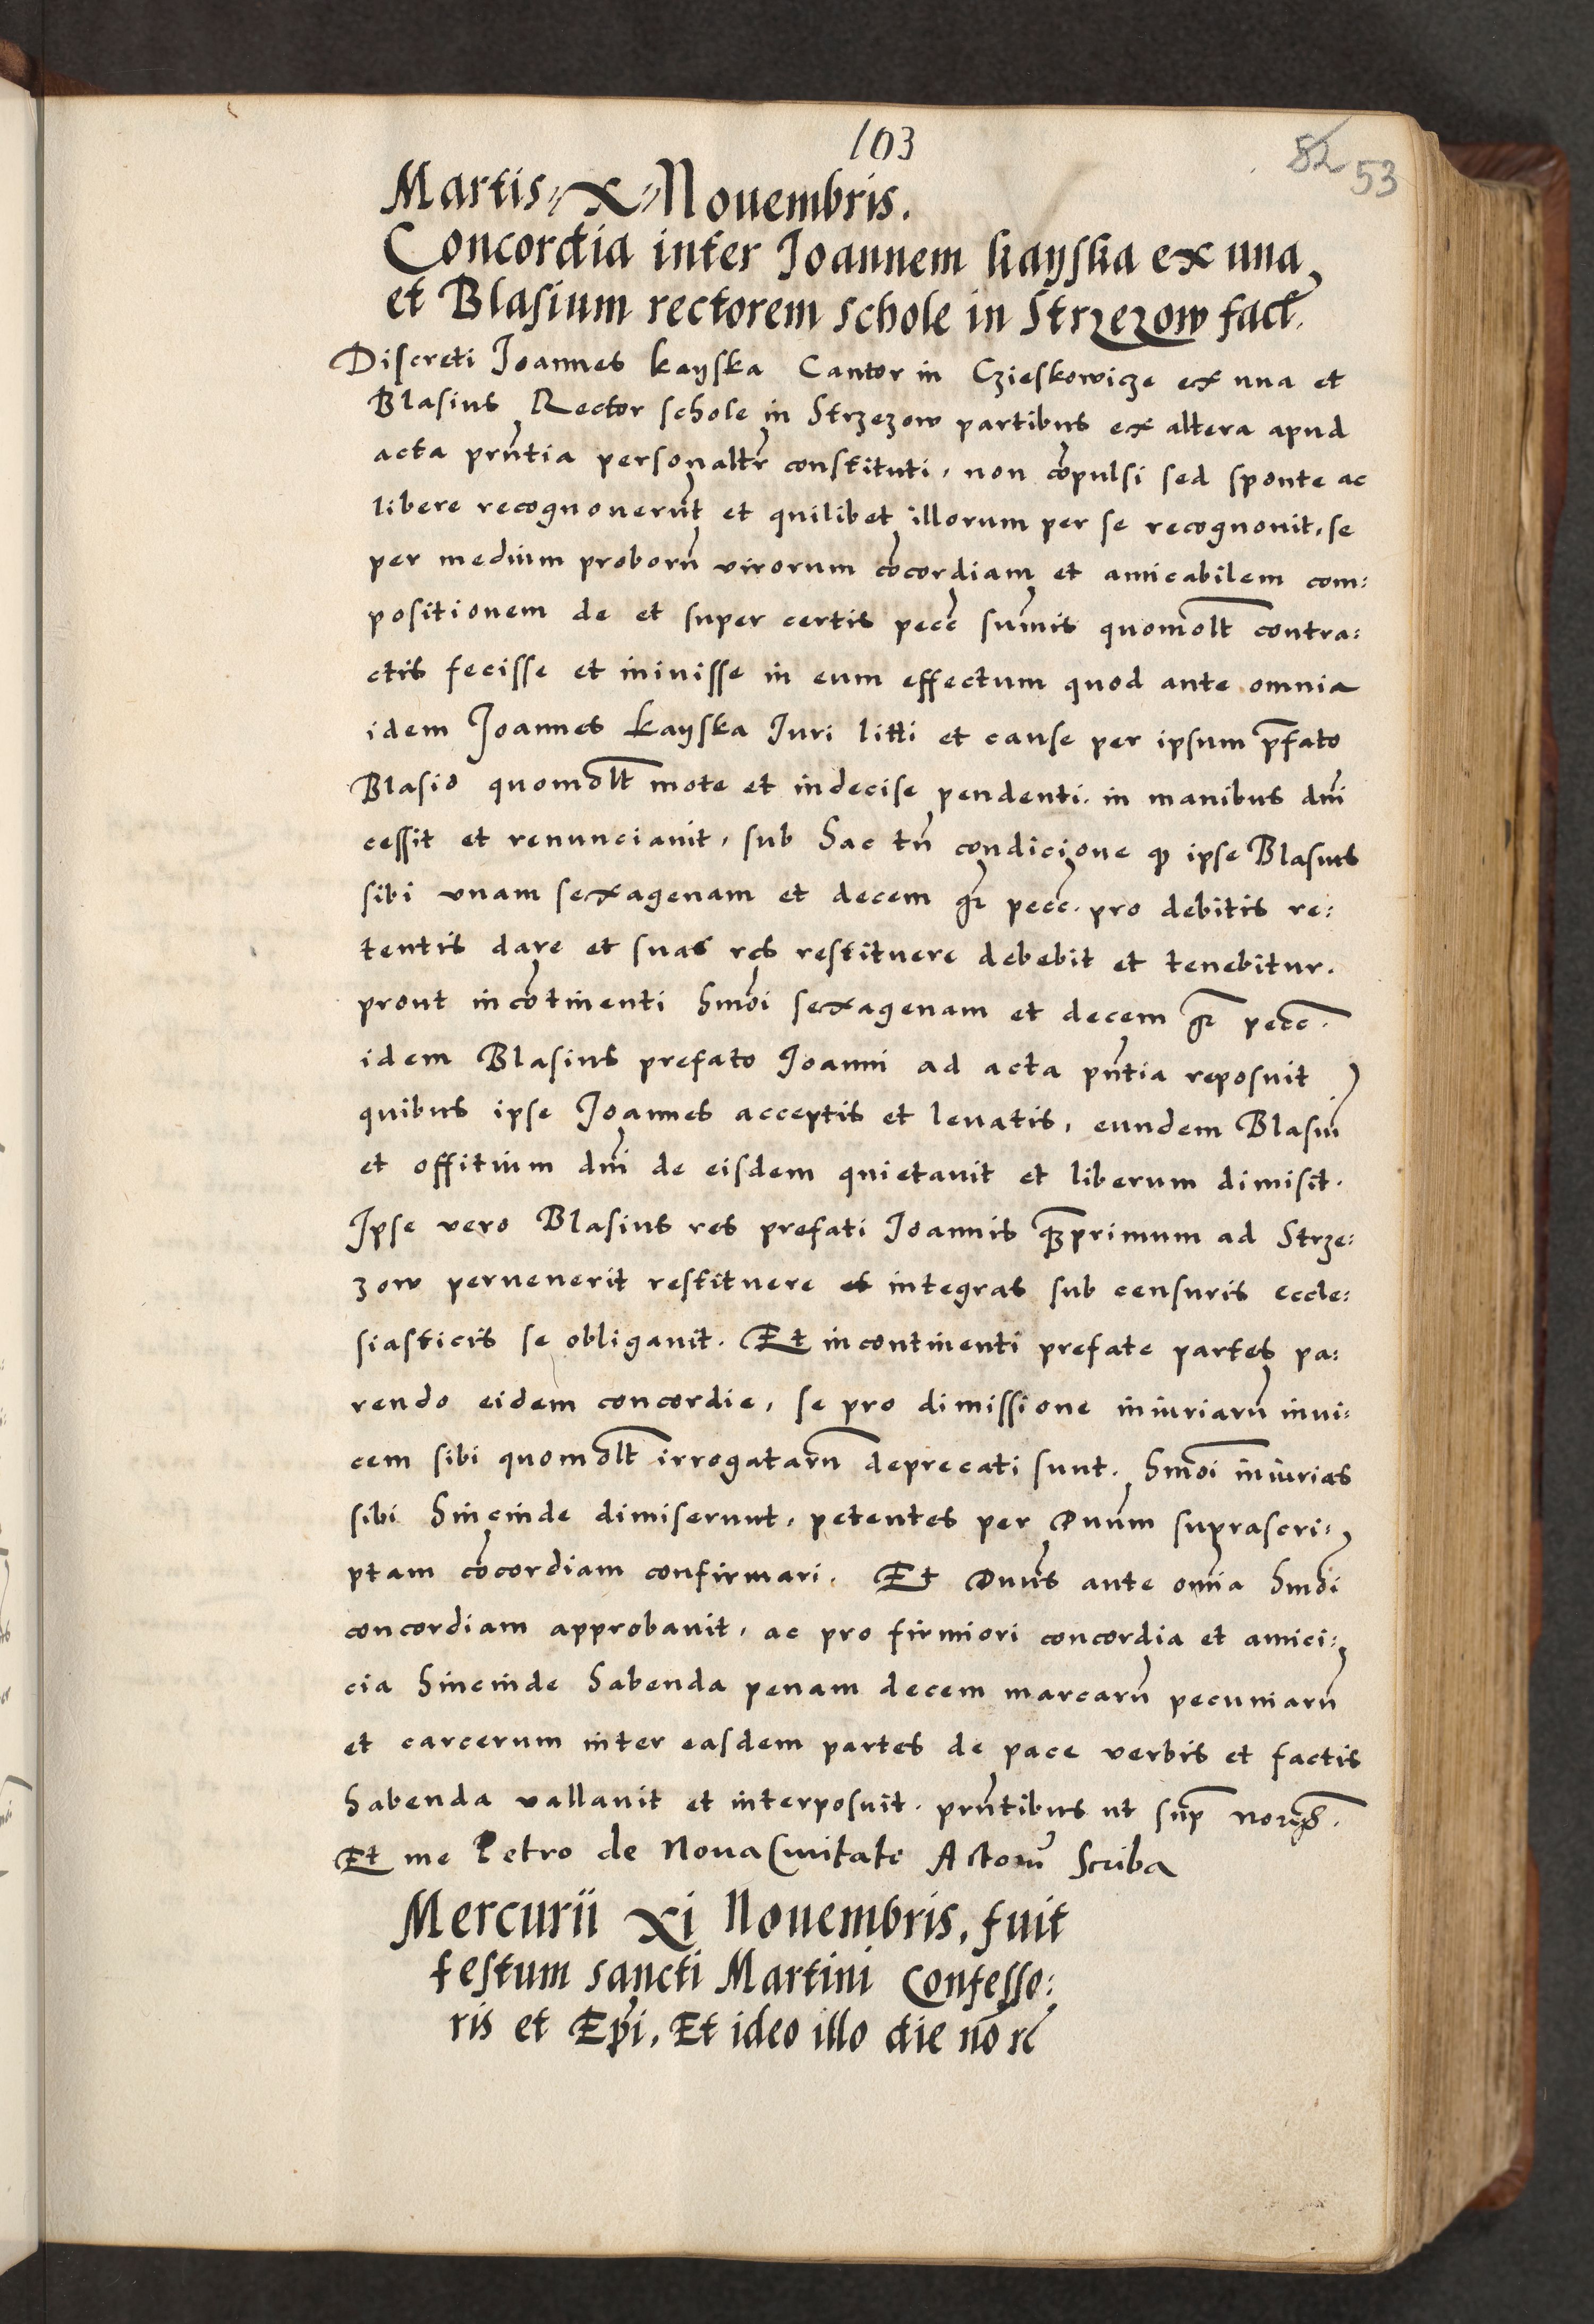 103
52 53
Martis x Nouembris.
Concordia inter Joannem kayska ex una
et Blasium rectorem schole in Strzezow fact.
Discreti Joannes kayska Cantor in Czieskowicze ex vna et
Blasius Rector schole in Strzezow partibus ex altera apud
acta prn̄tia personaltr̄ constituti, non cōpulsi sed sponte ac
libere recognouerūt et quilibet illorum per se recognouit, se
per medium proborū virorum cōcordiam et amicabilem com:
positionem de et super certis pecc sūmis quomōlt contra:
ctis fecisse et iniuisse in eum effectum quod ante omnia
idem Joannes kayska Juri litti et cause per ipsum p̄fato
Blasio quomōlt mote et indecise pendenti. in manibus dn̄i
cessit et renunciauit, sub hac tn̄ condicione ꝙ ipse Blasius
sibi vnam sexagenam et decem gr̄ pecc. pro debitis re:
tentis dare et suas res restituere debebit et tenebitur.
prout incōtinenti hmōi sexagenam et decem gr̄ pecc.
idem Blasius prefato Joanni ad acta pn̄tia reposuit
quibus ipse Joannes acceptis et leuatis, eundem Blasiū
et offitium dn̄i de eisdem quietauit et liberum dimisit.
Ipse vero Blasius res prefati Joannis qꝫprimum ad Strze:
zow peruenerit restituere et integras sub censuris eccle:
siasticis se obligauit. Et incontinenti prefate partes pa:
rendo eidem concordie, se pro dimissione iniuriarū inui:
cem sibi quomōlt irrogatarū deprecati sunt. hmōi iniurias
sibi hincinde dimiserunt, petentes per Dnūm suprascri:
ptam cōcordiam confirmari. Et Dnūs ante omīa hmōi
concordiam approbauit, ac pro firmiori concordia et amici:
cia hincinde habenda penam decem marcarū pecuniarū
et carcerum inter easdem partes de pace verbis et factis
habenda vallauit et interposuit. prn̄tibus ut sup̄
Et me Petro de Noua Ciuitate Actorū Scriba
Mercurii xi Nouembris, fuit
festum sancti Martini Confesso:
ris et Ep̄i, Et ideo illo die nō rc̄